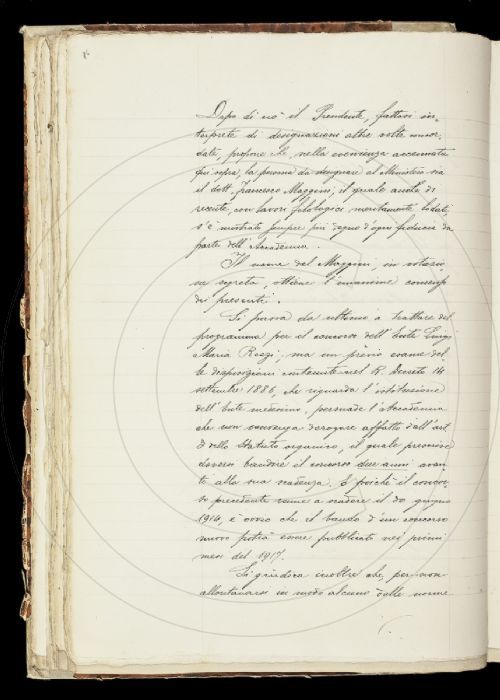 Dopo di ciò il Presidente, fattosi in-
terprete di designazioni altre volte ricor-
date, propone che, nella evenienza accennata
qui sopra, la persona da designare al Ministero sia
il dott. Francesco Maggini, il quale anche di
recente, con lavori filologici meritamente lodati,
s'è mostrato sempre più degno d'ogni fiducia da
parte dell'Accademia.
Il nome del Maggini, in votazio-
ne segreta, ottiene l'unanime consenso
dei presenti.
Si passa da ultimo a trattare del
programma per il concorso dell'Ente Luigi
Maria Rezzi, ma un previo esame del-
le disposizioni contenute nel R. Decreto 14
settembre 1886, che riguarda l'istituzione
dell'Ente medesimo, persuade l'Accademia
che non convenga derogare affatto dall'art.
dello Statuto organico, il quale prescrive
doversi bandire il concorso due anni avan-
ti alla sua scadenza. E poichè il concor-
so precedente viene a scadere il 30 giugno
1916, è ovvio che il bando d'un concorso
nuovo potrà essere pubblicato nei primi
mesi del 1917.
Si giudica inoltre che, per non
allontanarsi in modo alcuno dalle norme